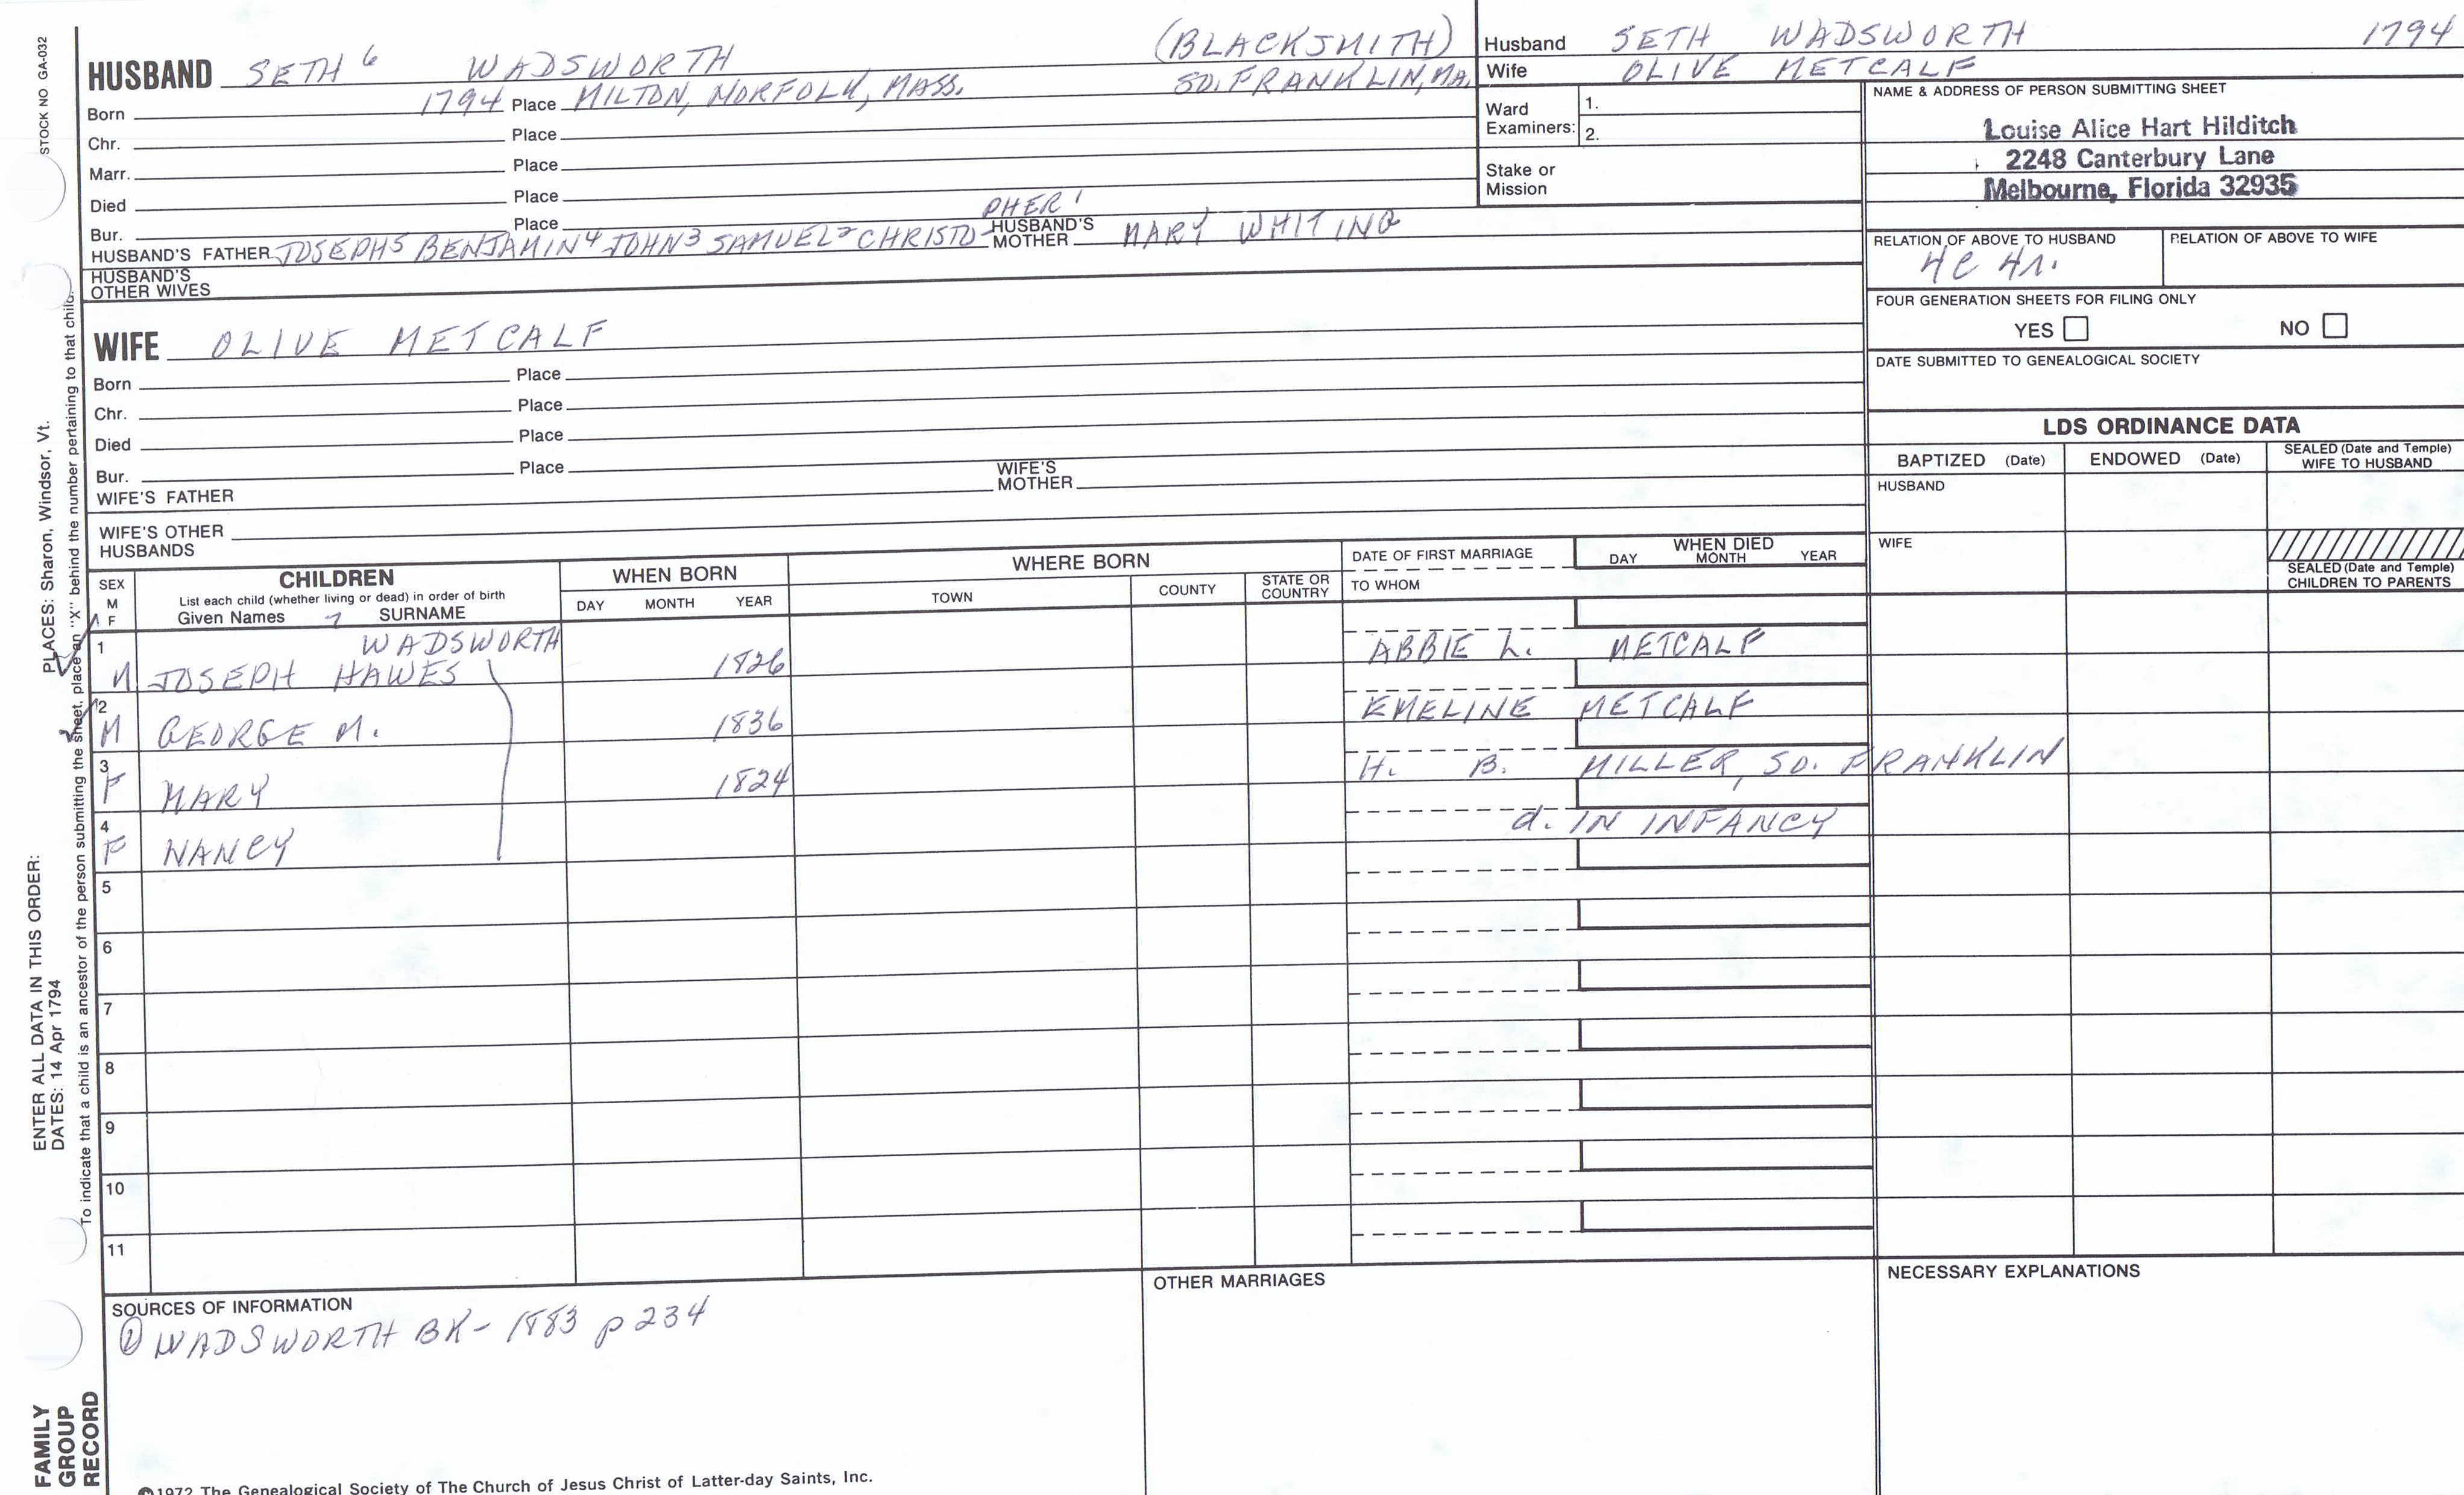 STOCK NO GA-032
PLACES: Sharon, Windsor, Vt.
ENTER ALL DATA IN THIS ORDER:
DATES: 14 Apr 1794
To indicate that a child is an ancestor of the person submitting the sheet, place an "X" behind the number pertaining to that child.
FAMILY
GROUP
RECORD
HUSBAND SETH 6 WADSWORTH (BLACKSMITH)
Born 1794 Place MILTON, NORFOLK, MASS. SO. FRANKLIN, MA.
Chr. Place
Marr. Place
Died Place
Bur. Place
PHER 1
HUSBAND'S FATHER JOSEPH5 BENJAMIN4 JOHN3 SAMUEL2 CHRISTO- HUSBAND'S MOTHER MARY WHITING
HUSBAND'S
OTHER WIVES
WIFE OLIVE METCALF
Born Place
Chr. Place
Died Place
Bur. Place
WIFE'S FATHER WIFE'S MOTHER
WIFE'S OTHER
HUSBANDS
Husband SETH WADSWORTH 1794
Wife OLIVE METCALF
Ward
Examiners: 1.
2.
Stake or
Mission
NAME & ADDRESS OF PERSON SUBMITTING SHEET
Louise Alice Hart Hilditch
2248 Canterbury Lane
Melbourne, Florida 32935
RELATION OF ABOVE TO HUSBAND RELATION OF ABOVE TO WIFE
4C 4r.
FOUR GENERATION SHEETS FOR FILING ONLY
YES NO
DATE SUBMITTED TO GENEALOGICAL SOCIETY
LDS ORDINANCE DATA
BAPTIZED (Date) ENDOWED (Date) SEALED (Date and Temple)
WIFE TO HUSBAND
HUSBAND
WIFE
SEALED (Date and Temple)
CHILDREN TO PARENTS
SEX
M
F
CHILDREN
List each child (whether living or dead) in order of birth
Given Names 7 SURNAME
WHEN BORN
DAY MONTH YEAR
WHERE BORN
TOWN COUNTY STATE OR
COUNTRY
DATE OF FIRST MARRIAGE
TO WHOM
WHEN DIED
DAY MONTH YEAR
WADSWORTH
1 M JOSEPH HAWES 1826 ABBIE L. METCALF
2 M GEORGE M. 1836 EMELINE METCALF
3 F MARY 1824 H. B. MILLER, SO. FRANKLIN
4 F NANCY d. IN INFANCY
5
6
7
8
9
10
11
SOURCES OF INFORMATION
① WADSWORTH BK- 1883 p 234
OTHER MARRIAGES
NECESSARY EXPLANATIONS
©1972 The Genealogical Society of The Church of Jesus Christ of Latter-day Saints, Inc.